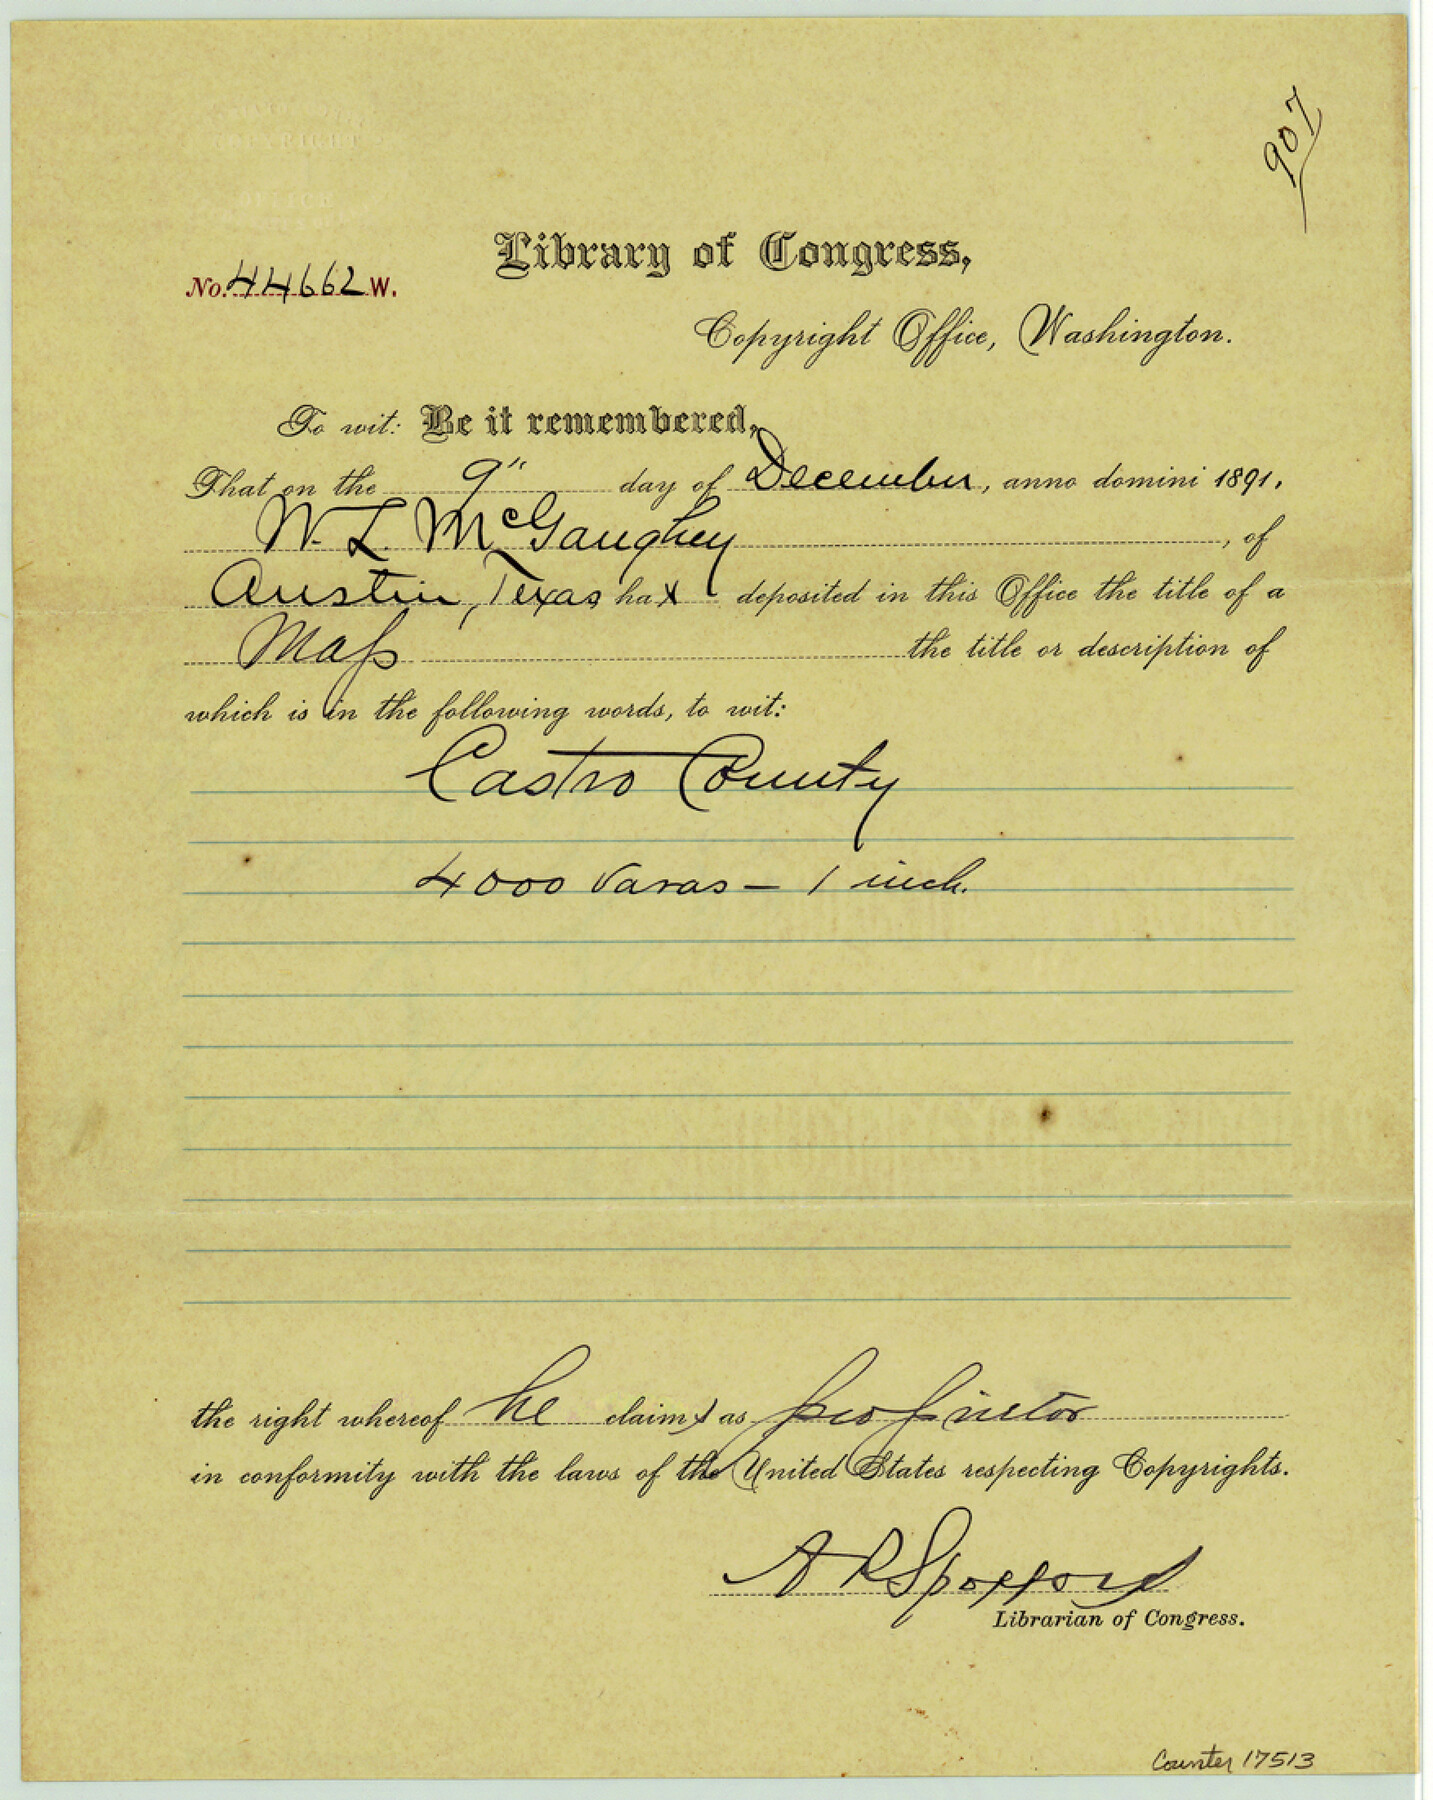 907
Library of Congress,
No. 44662 W.
Copyright Office, Washington.
To wit: Be it remembered,
That on the 9" day of December, anno domini 1891.
W. L. McGaughey, of
Austin, Texas has deposited in this Office the title of a
Map the title or description of
which is in the following words, to wit:
Castro County
4000 Varas — 1 inch.
the right whereof he claims as proprietor
in conformity with the laws of the United States respecting Copyrights.
A R Spofford
Librarian of Congress.
Counter 17513